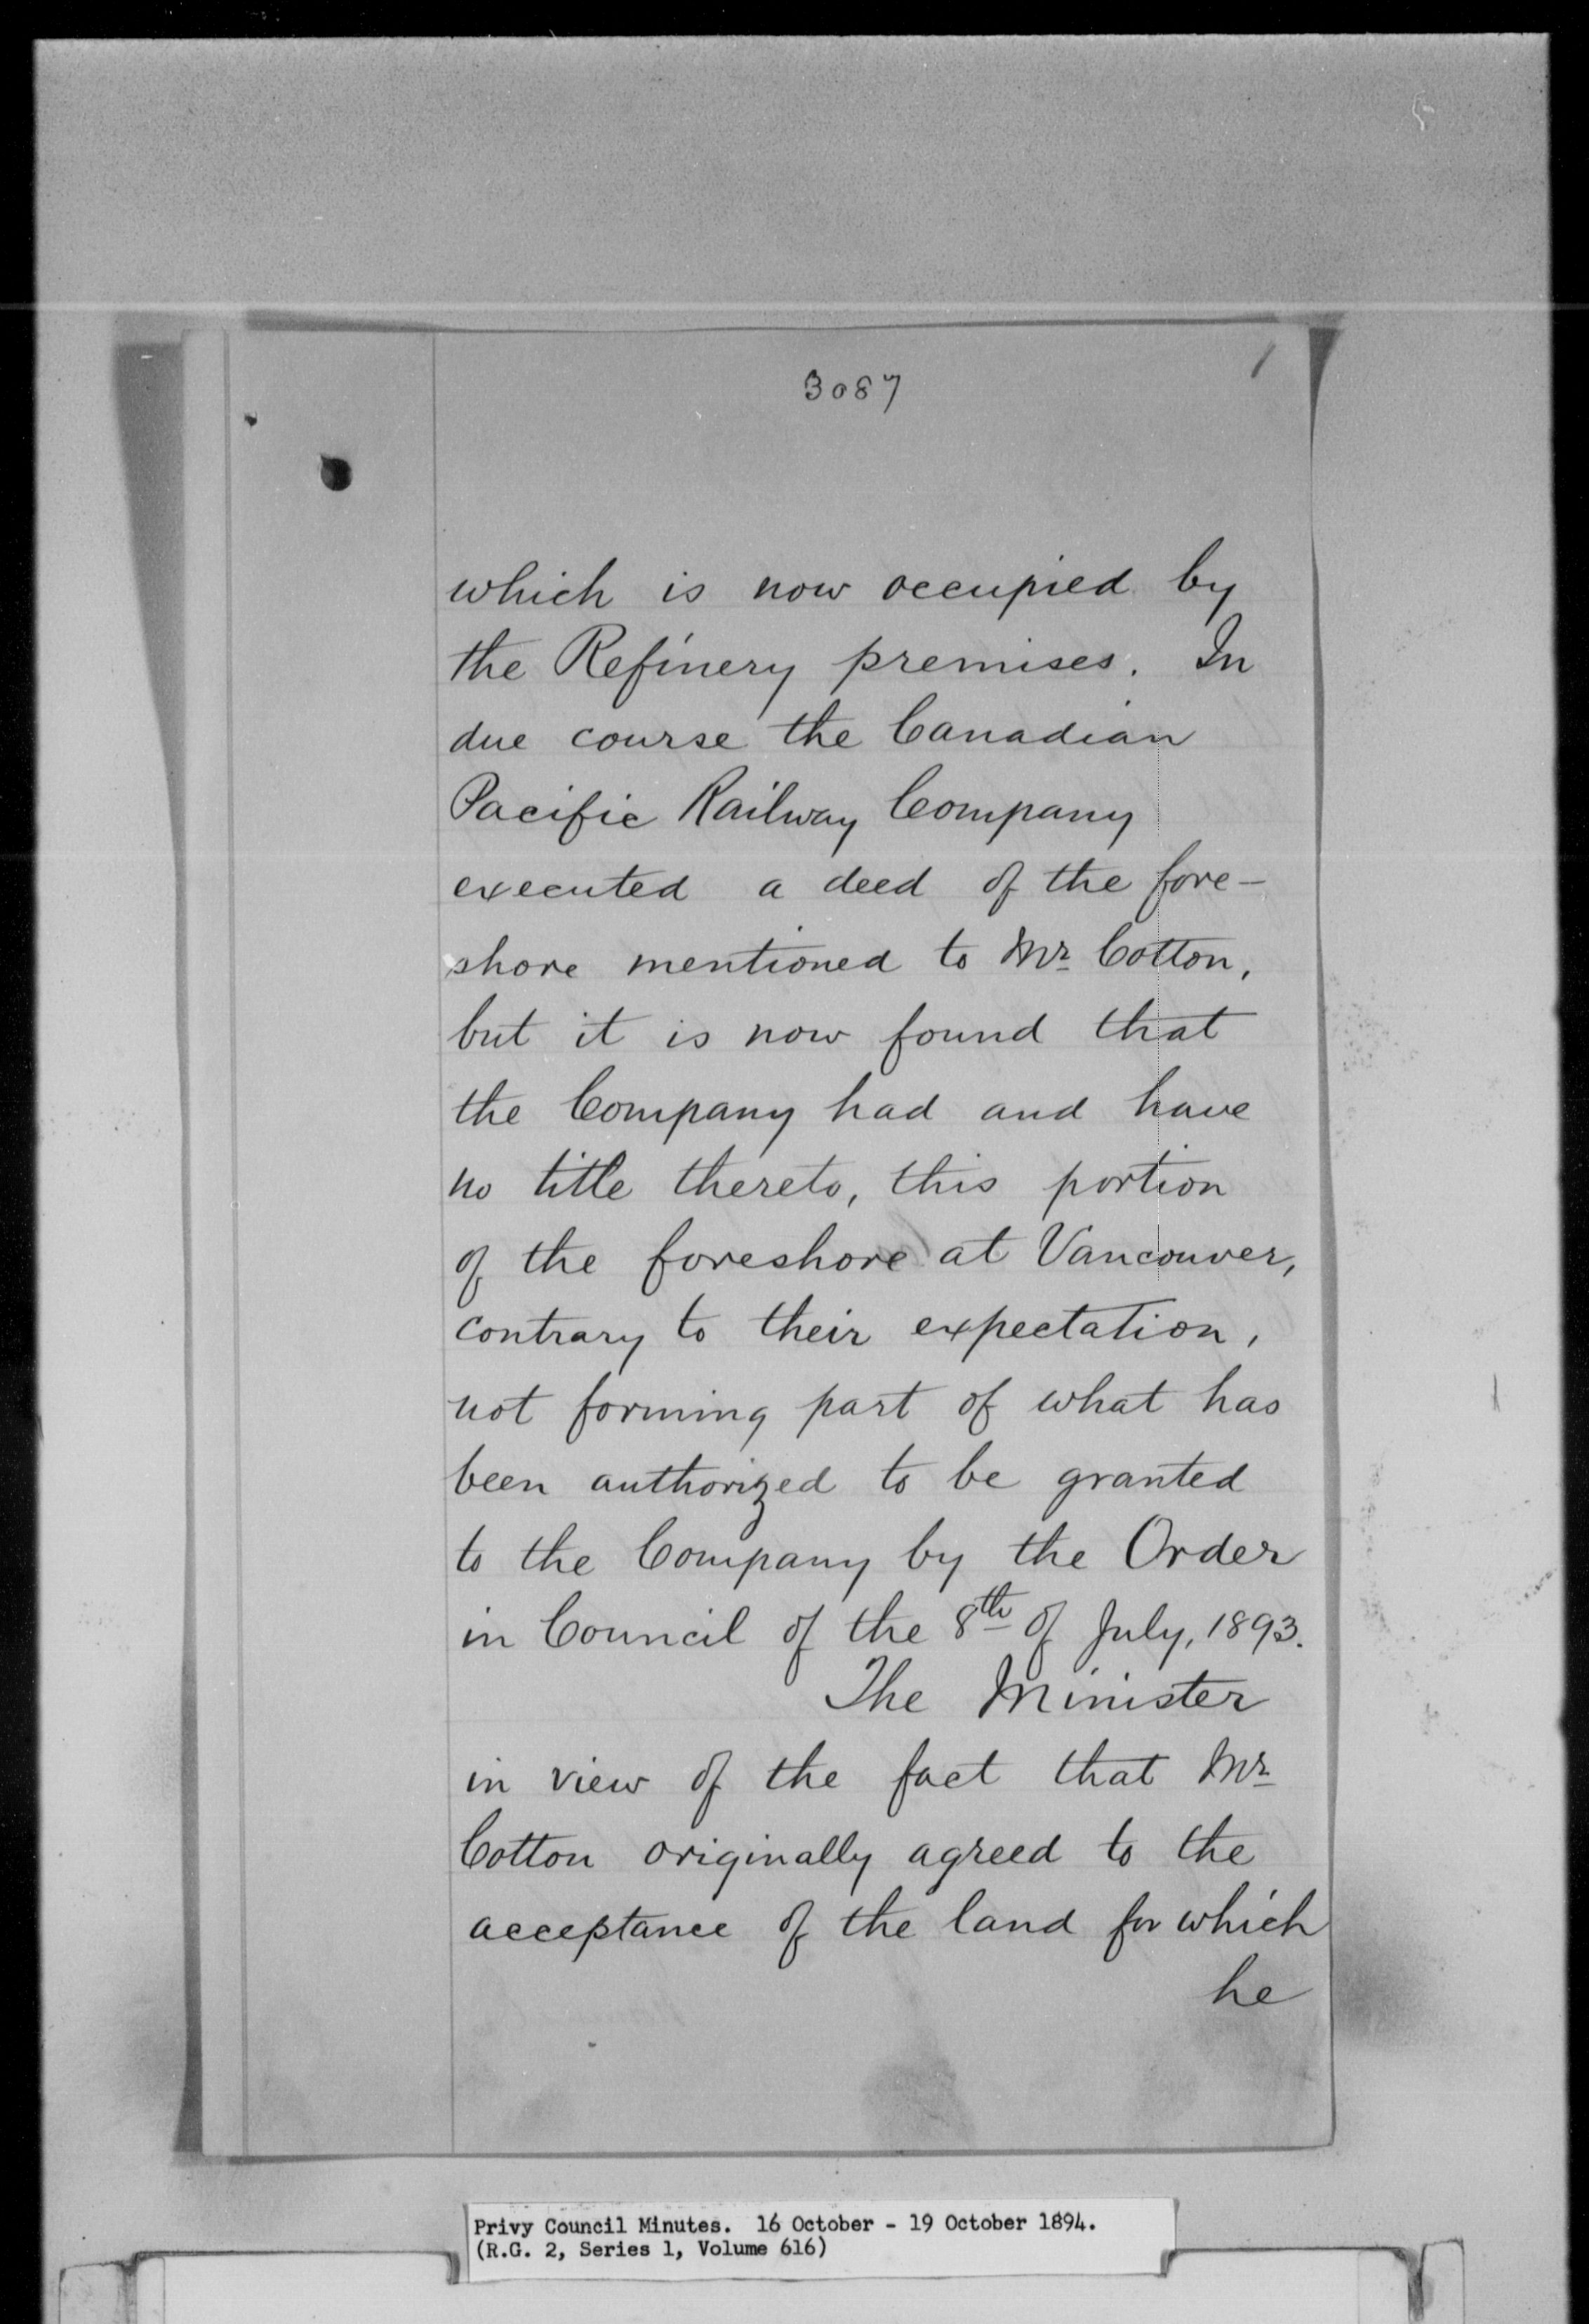 3087
which is now occupied by
the Refinery premises. In
due course the Canadian
Pacific Railway Company
executed a deed of the fore-
shore mentioned to Mr Cotton,
but it is now found that
the Company had and have
no title thereto, this portion
of the foreshore at Vancouver,
contrary to their expectation,
not forming part of what has
been authorized to be granted
to the Company by the Order
in Council of the 8th of July, 1893.
The Minister
in view of the fact that Mr
Cotton originally agreed to the
acceptance of the land for which
he
Privy Council Minutes. 16 October - 19 October 1894.
(R.G. 2, Series 1, Volume 616)